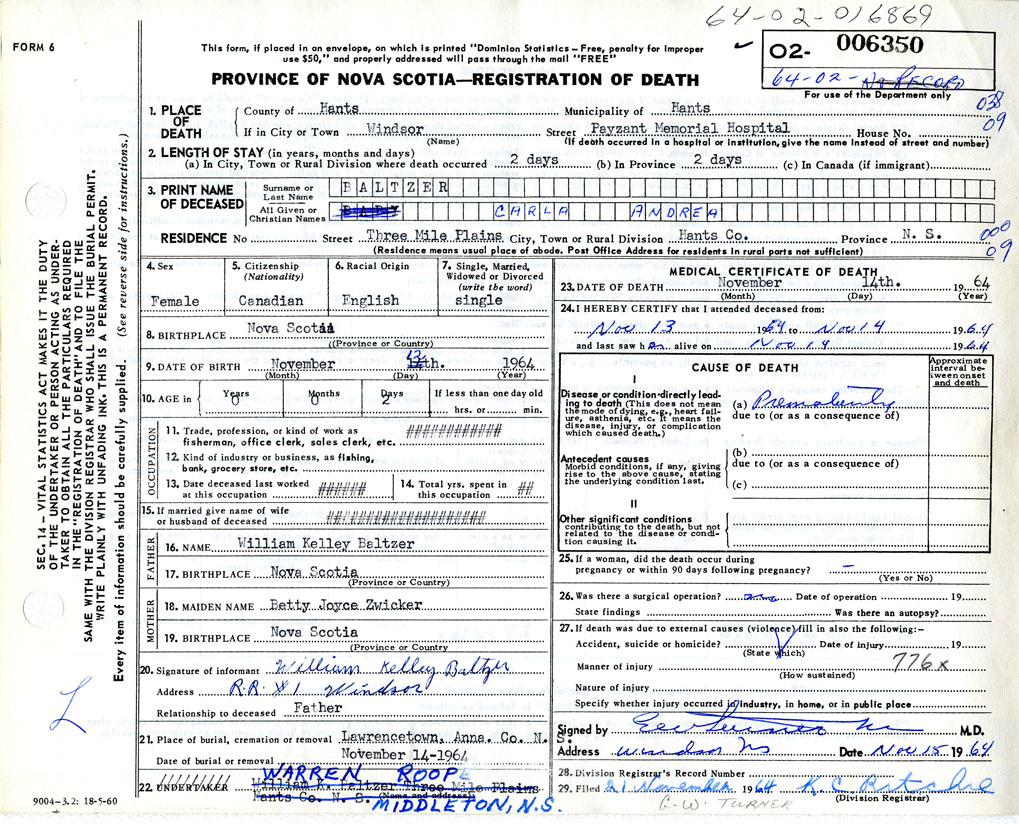 64-02-016869
FORM 6
This form, if placed in an envelope, on which is printed "Dominion Statistics – Free, penalty for improper
use $50," and properly addressed will pass through the mail "FREE"
✓ 02- 006350
64-02- No RECORD
For use of the Department only
PROVINCE OF NOVA SCOTIA—REGISTRATION OF DEATH
038
09
1. PLACE OF DEATH
County of Hants Municipality of Hants
If in City or Town Windsor Street Payzant Memorial Hospital House No.
(Name) (If death occurred in a hospital or institution, give the name instead of street and number)
2. LENGTH OF STAY (in years, months and days)
(a) In City, Town or Rural Division where death occurred 2 days (b) In Province 2 days (c) In Canada (if immigrant)
3. PRINT NAME OF DECEASED
Surname or Last Name BALTZER
All Given or Christian Names BABY CARLA ANDREA
RESIDENCE No Street Three Mile Plains City, Town or Rural Division Hants Co. Province N. S.
000
09
(Residence means usual place of abode. Post Office Address for residents in rural parts not sufficient)
4. Sex
Female
5. Citizenship
(Nationality)
Canadian
6. Racial Origin
English
7. Single, Married,
Widowed or Divorced
(write the word)
single
8. BIRTHPLACE Nova Scotia
((Province or Country)
9. DATE OF BIRTH November 13 th. 1964
(Month) (Day) (Year)
10. AGE in
Years 0
Months 0
Days 2
If less than one day old
hrs. or min.
OCCUPATION
11. Trade, profession, or kind of work as
fisherman, office clerk, sales clerk, etc. ############
12. Kind of industry or business, as fishing,
bank, grocery store, etc.
13. Date deceased last worked
at this occupation ######
14. Total yrs. spent in
this occupation ##
15. If married give name of wife
or husband of deceased ####################
FATHER
16. NAME William Kelley Baltzer
17. BIRTHPLACE Nova Scotia
(Province or Country)
MOTHER
18. MAIDEN NAME Betty Joyce Zwicker
19. BIRTHPLACE Nova Scotia
(Province or Country
20. Signature of informant William Kelley Baltzer
Address R.R. #1 Windsor
Relationship to deceased Father
21. Place of burial, cremation or removal Lawrencetown, Anna. Co. N. S.
Date of burial or removal November 14-1964
WARREN ROOPE
22. UNDERTAKER William K. Baltzer Three Mile Plains
Hants Co. N. S. (Name and address)
MIDDLETON, N.S.
MEDICAL CERTIFICATE OF DEATH
23. DATE OF DEATH November 14th. 19 64
(Month) (Day) (Year)
24. I HEREBY CERTIFY that I attended deceased from:
Nov 13 1964 to Nov 14 1964
and last saw her alive on Nov 14 1964
CAUSE OF DEATH
Approximate
interval between onset
and death
I
Disease or condition directly leading to death (This does not mean
the mode of dying, e.g., heart failure, asthenia, etc. It means the
disease, injury, or complication
which caused death.)
(a) Prematurity
due to (or as a consequence of)
Antecedent causes
Morbid conditions, if any, giving
rise to the above cause, stating
the underlying condition last.
(b)
due to (or as a consequence of)
(c)
II
Other significant conditions
contributing to the death, but not
related to the disease or condition causing it.
25. If a woman, did the death occur during
pregnancy or within 90 days following pregnancy? –
(Yes or No)
26. Was there a surgical operation? no Date of operation 19
State findings Was there an autopsy?
27. If death was due to external causes (violence) fill in also the following:–
Accident, suicide or homicide? Date of injury 19
(State which)
776x
Manner of injury
(How sustained)
Nature of injury
Specify whether injury occurred in industry, in home, or in public place
Signed by M.D.
Address Windsor NS Date Nov 15 1964
28. Division Registrar's Record Number
29. Filed 21 November 1964 K C Ritchie
(Division Registrar)
G.W. TURNER
SEC. 14 – VITAL STATISTICS ACT MAKES IT THE DUTY
OF THE UNDERTAKER OR PERSON ACTING AS UNDERTAKER TO OBTAIN ALL THE PARTICULARS REQUIRED
IN THE "REGISTRATION OF DEATH" AND TO FILE THE
SAME WITH THE DIVISION REGISTRAR WHO SHALL ISSUE THE BURIAL PERMIT.
WRITE PLAINLY WITH UNFADING INK. THIS IS A PERMANENT RECORD.
Every item of information should be carefully supplied. (See reverse side for instructions.)
L
9004-3.2: 18-5-60